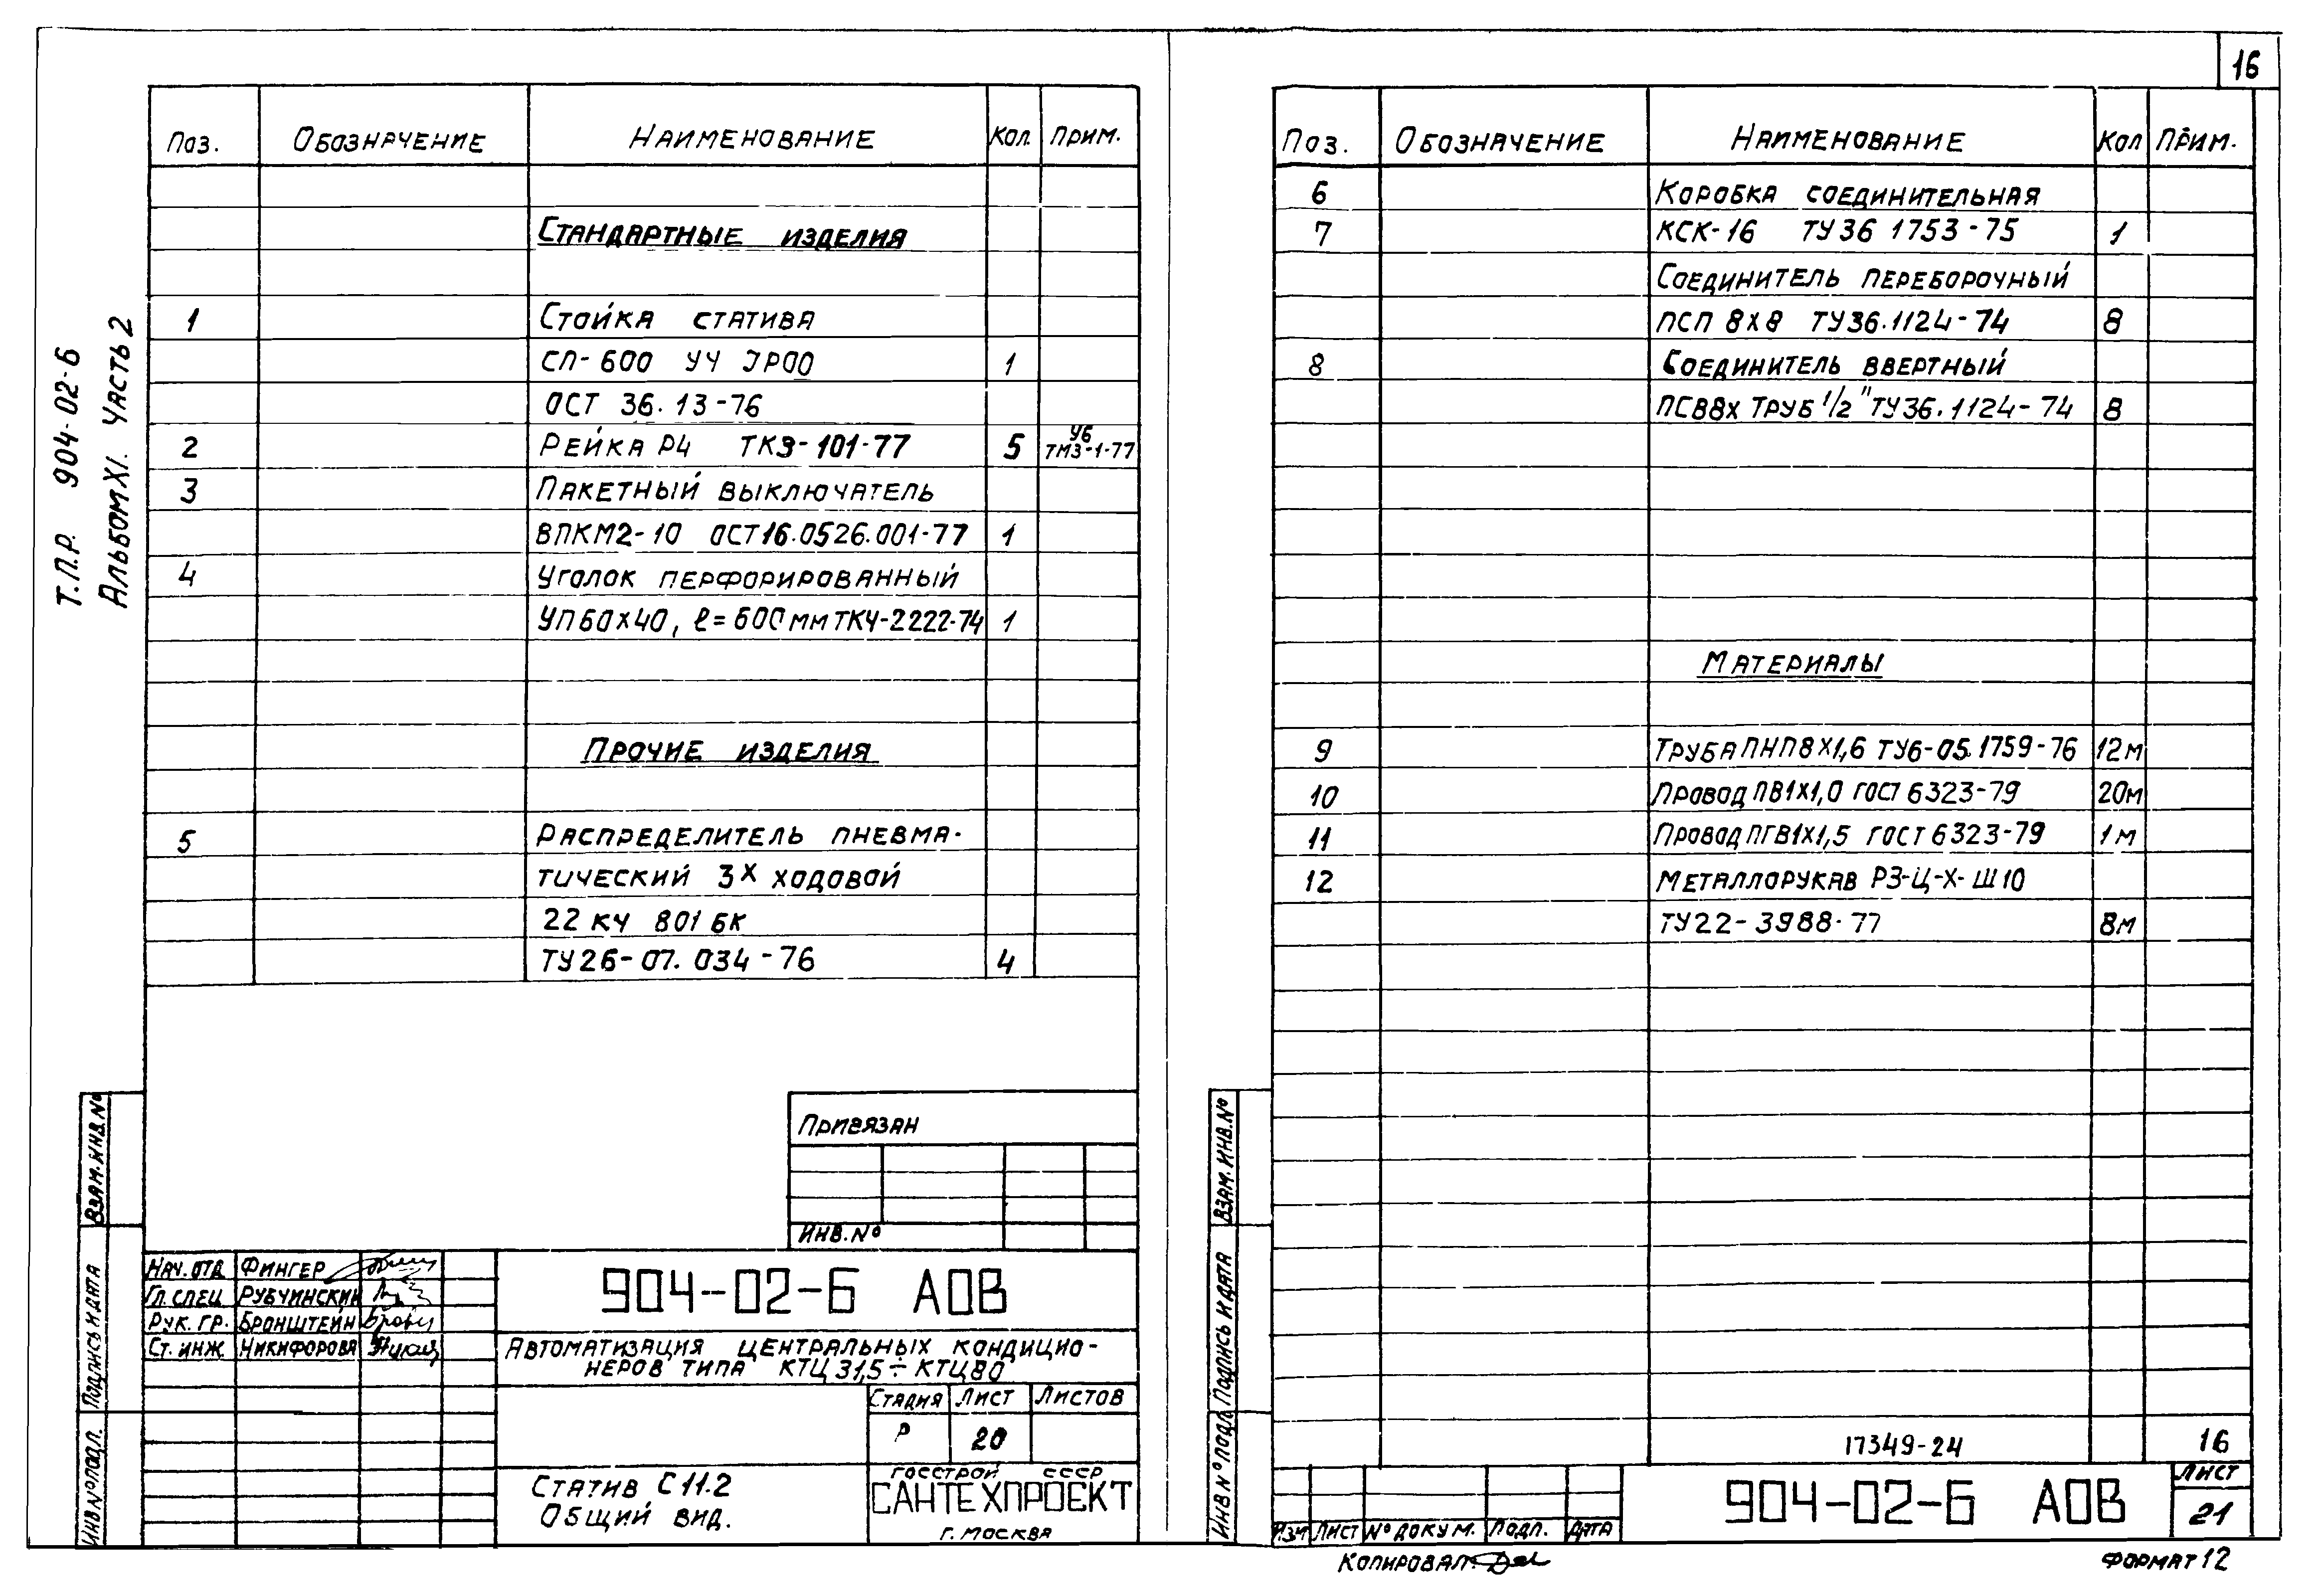 16
Т.П.Р. 904-02-6
Альбом XI. Часть 2
Поз. Обозначение Наименование Кол. Прим.
Стандартные изделия
1 Стойка статива
СП-600 УЧ JP00 1
ОСТ 36.13-76
2 Рейка Р4 ТК3-101-77 5 У6 ТМ3-1-77
3 Пакетный выключатель
ВПКМ2-10 ОСТ16.0526.001-77 1
4 Уголок перфорированный
УП60х40, ℓ=600мм ТКЧ-2222-74 1
Прочие изделия
5 Распределитель пневма-
тический 3х ходовой
22 КЧ 801 БК
ТУ26-07.034-76 4
Привязан
Инв.№
Нач. отд Фингер
Гл. спец Рубчинский
Рук. гр. Бронштейн
Ст. инж Никифорова
904-02-6 АОВ
Автоматизация центральных кондицио-
неров типа КТЦ 31,5÷КТЦ80
Стадия Лист Листов
Р 20
Статив С11.2
Общий вид.
Госстрой СССР
САНТЕХПРОЕКТ
г. Москва
Взам. инв.№
Подпись и дата
Инв № подл.
Поз. Обозначение Наименование Кол Прим.
6 Коробка соединительная
7 КСК-16 ТУ36 1753-75 1
Соединитель переборочный
ПСП 8х8 ТУ36.1124-74 8
8 Соединитель ввертный
ПСВ8х труб 1/2" ТУ36.1124-74 8
Материалы
9 Труба ПНП8х1,6 ТУ6-05.1759-76 12м
10 Провод ПВ1х1,0 ГОСТ 6323-79 20м
11 Провод ПГВ1х1,5 ГОСТ 6323-79 1м
12 Металлорукав РЗ-Ц-Х-Ш10
ТУ22-3988-77 8м
17349-24 16
Изм Лист № докум. Подп. Дата
904-02-6 АОВ
Лист
21
Взам. инв.№
Подпись и дата
Инв № подл
Копировал:
Формат 12